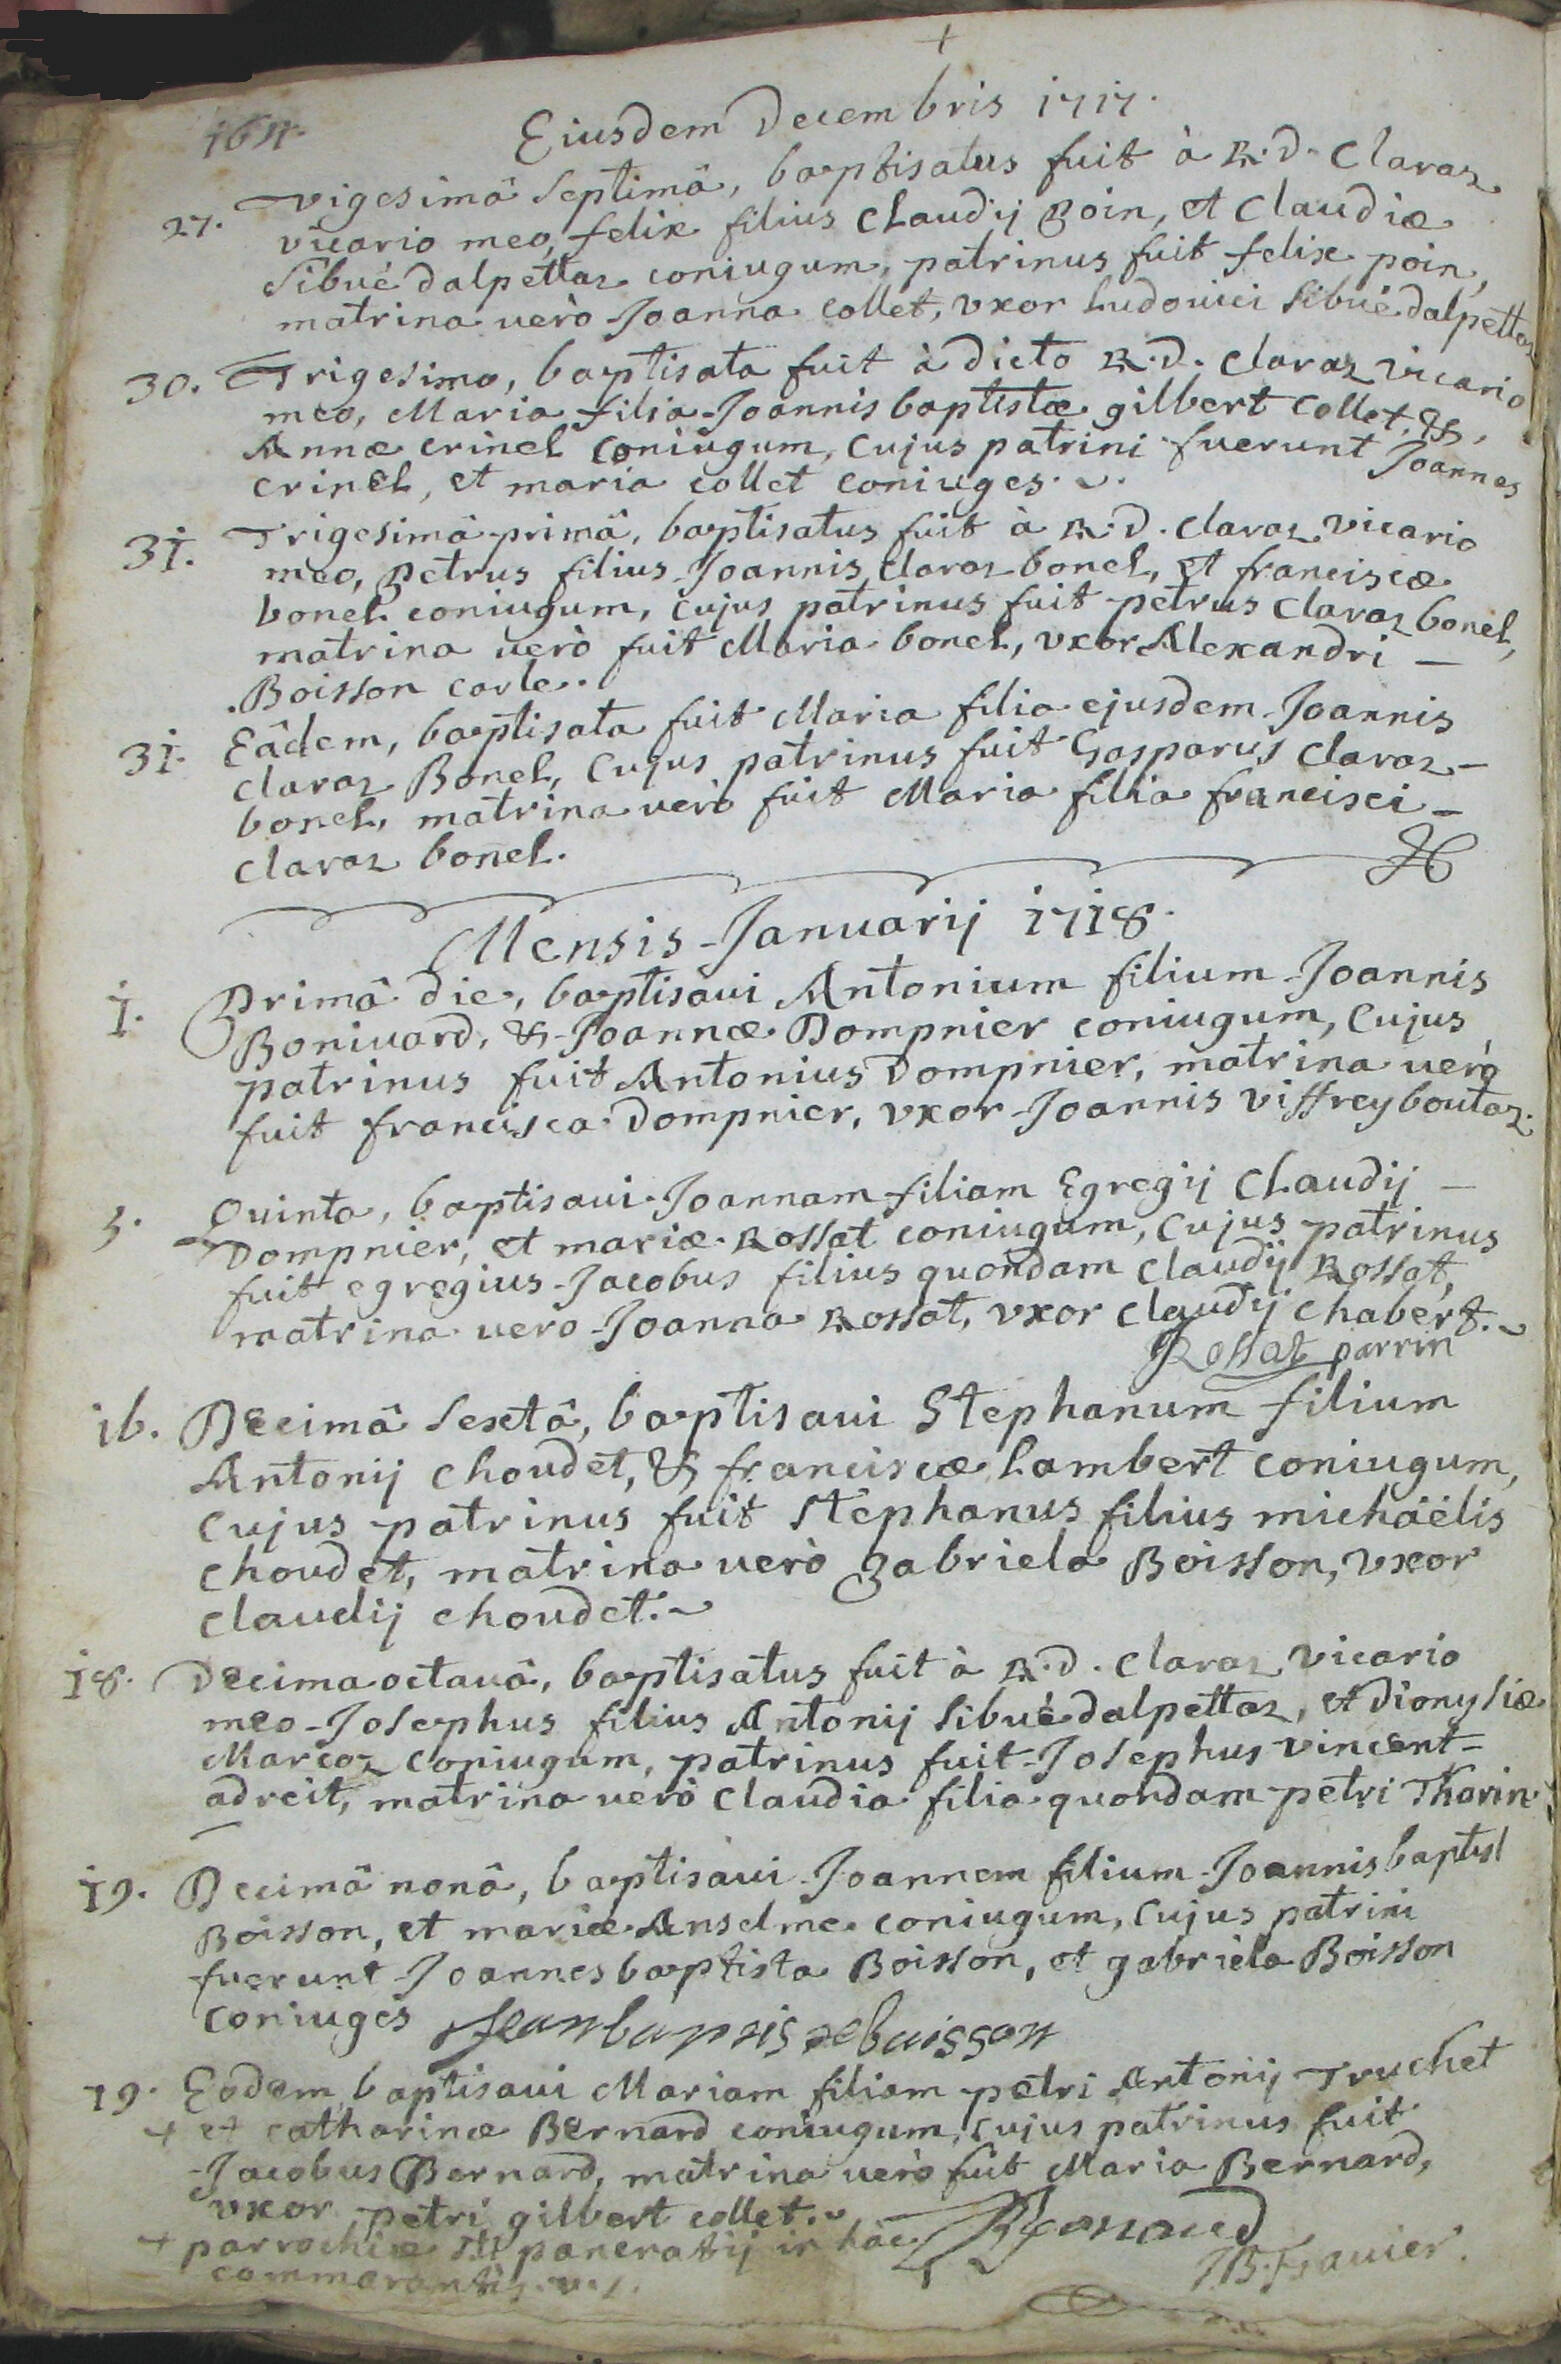 Eiusdem Decembris 1717.
27. Vigesimâ septimâ, baptisatus fuit à R.D. Claraz
vicario meo, felix filius Claudij Poin, et Claudiæ
Sibué dalpettaz coniugum, patrinus fuit felix poin,
matrina uerò Joanna collet, vxor Ludouici Sibué dalpettaz
30. Trigesima, baptisata fuit à dicto R.D. Claraz vicario
meo, Maria filia Joannis baptistæ gilbert collet, &
Annæ crinel coniugum, cujus patrini fuerunt Joannes
crinel, et maria collet coniuges.
31. Trigesimâ primâ, baptisatus fuit à R.D. Claraz vicario
meo, Petrus filius Joannis Claraz bonel, et franciscæ
bonel coniugum, cujus patrinus fuit petrus Claraz bonel,
matrina uerò fuit Maria bonel, vxor Alexandri –
Boisson carle.
31. Eâdem, baptisata fuit Maria filia ejusdem Joannis
Claraz Bonel, cujus patrinus fuit Gasparus Claraz –
bonel, matrina uerò fuit Maria filia francisci –
Claraz bonel.
Mensis Januarij 1718.
1. Primâ die, baptisaui Antonium filium Joannis
Boniuard, & Joannæ Dompnier coniugum, cujus
patrinus fuit Antonius Dompnier, matrina uerò
fuit francisca Dompnier, vxor Joannis Viffrey boutaz.
5. Quinta, baptisaui Joannam filiam Egregij Claudij –
Dompnier, et mariæ Rossat coniugum, cujus patrinus
fuit egregius Jacobus filius quondam Claudij Rossat,
matrina uero Joanna Rossat, vxor Claudij Chabert.
Rossat parrin
16. Decimâ sextâ, baptisaui Stephanum filium
Antonij Choudet, & franciscæ Lambert coniugum,
cujus patrinus fuit Stephanus filius michäelis
Choudet, matrina uerò gabriela Boisson, vxor
Claudij choudet.
18. Decima octauâ, baptisatus fuit à R.D. Claraz vicario
meo Josephus filius Antonij Sibué dalpettaz, et dionysiæ
Marcoz coniugum, patrinus fuit Josephus vincent –
adreit, matrina uerò Claudia filia quondam petri Tharin
19. Decimâ nonâ, baptisaui Joannem filium Joannis baptist
Boisson, et mariæ Anselme coniugum, cujus patrini
fuerunt Joannes baptista Boisson, et gabriela Boisson
coniuges
19. Eadem baptisaui Mariam filiam petri Antonij Truchet
+ et catharinæ Bernard coniugum, cujus patrinus fuit
Jacobus Bernard, matrina uerò fuit Maria Bernard,
vxor petri gilbert collet.
+ parrochiæ Sti pancratij in hac
commorantis